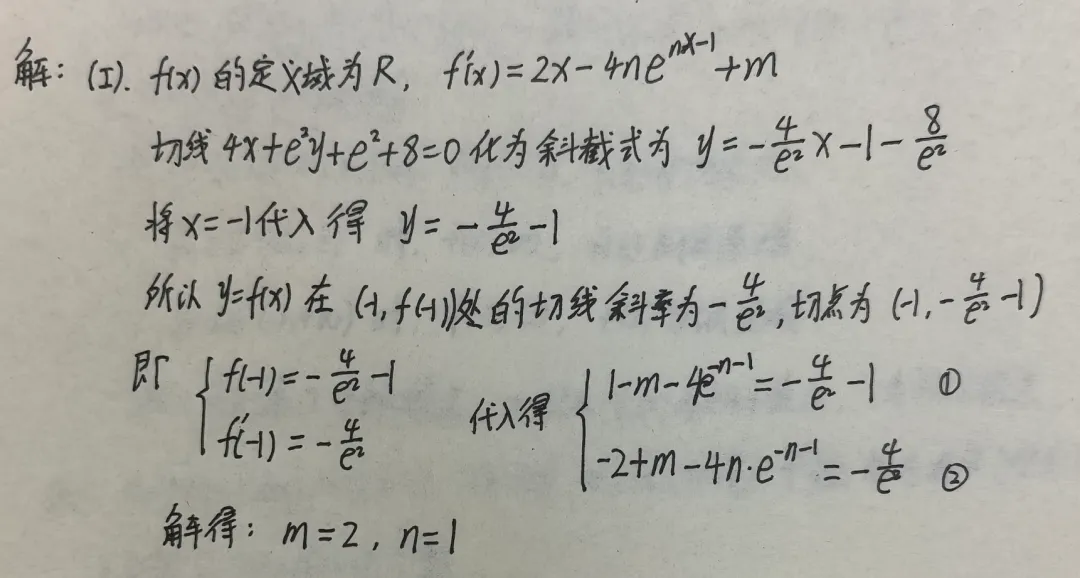 解：(I). f(x) 的定义域为 R，f'(x)=2x-4ne^{nx-1}+m
切线 4x+e²y+e²+8=0 化为斜截式为 y=-\frac{4}{e²}x-1-\frac{8}{e²}
将 x=-1代入得 y=-\frac{4}{e²}-1
所以 y=f(x) 在 (-1, f(-1))处的切线斜率为-\frac{4}{e²}, 切点为 (-1, -\frac{4}{e²}-1)
即 { f(-1)=-\frac{4}{e²}-1 代入得 { 1-m-4e^{-n-1}=-\frac{4}{e²}-1 ①
f'(-1)=-\frac{4}{e²} -2+m-4n·e^{-n-1}=-\frac{4}{e²} ②
解得：m=2, n=1